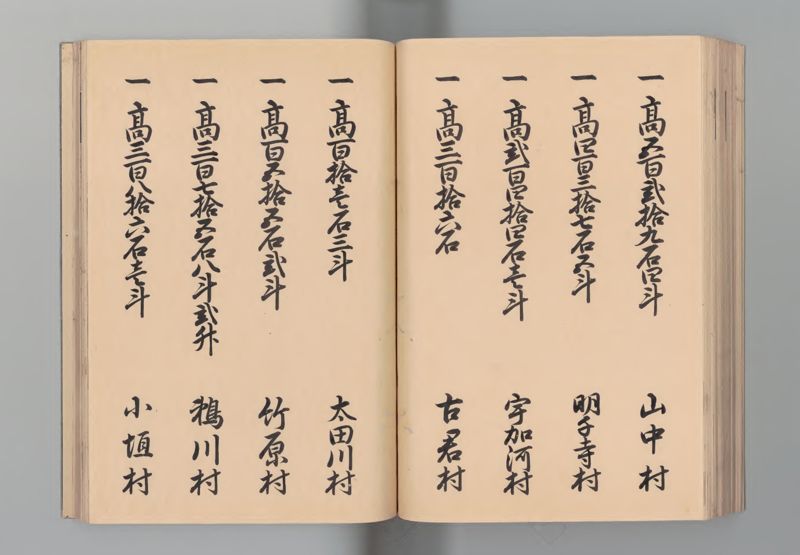 一 高五百弐拾九石四斗 山中村
一 高四百三拾七石五斗 明千寺村
一 高弐百四拾四石壱斗 宇加河村
一 高三百拾六石 古君村
一 高百拾壱石三斗 太田川村
一 高百五拾五石弐斗 竹原村
一 高三百七拾五石八斗弐升 鵜川村
一 高三百八拾六石壱斗 小垣村